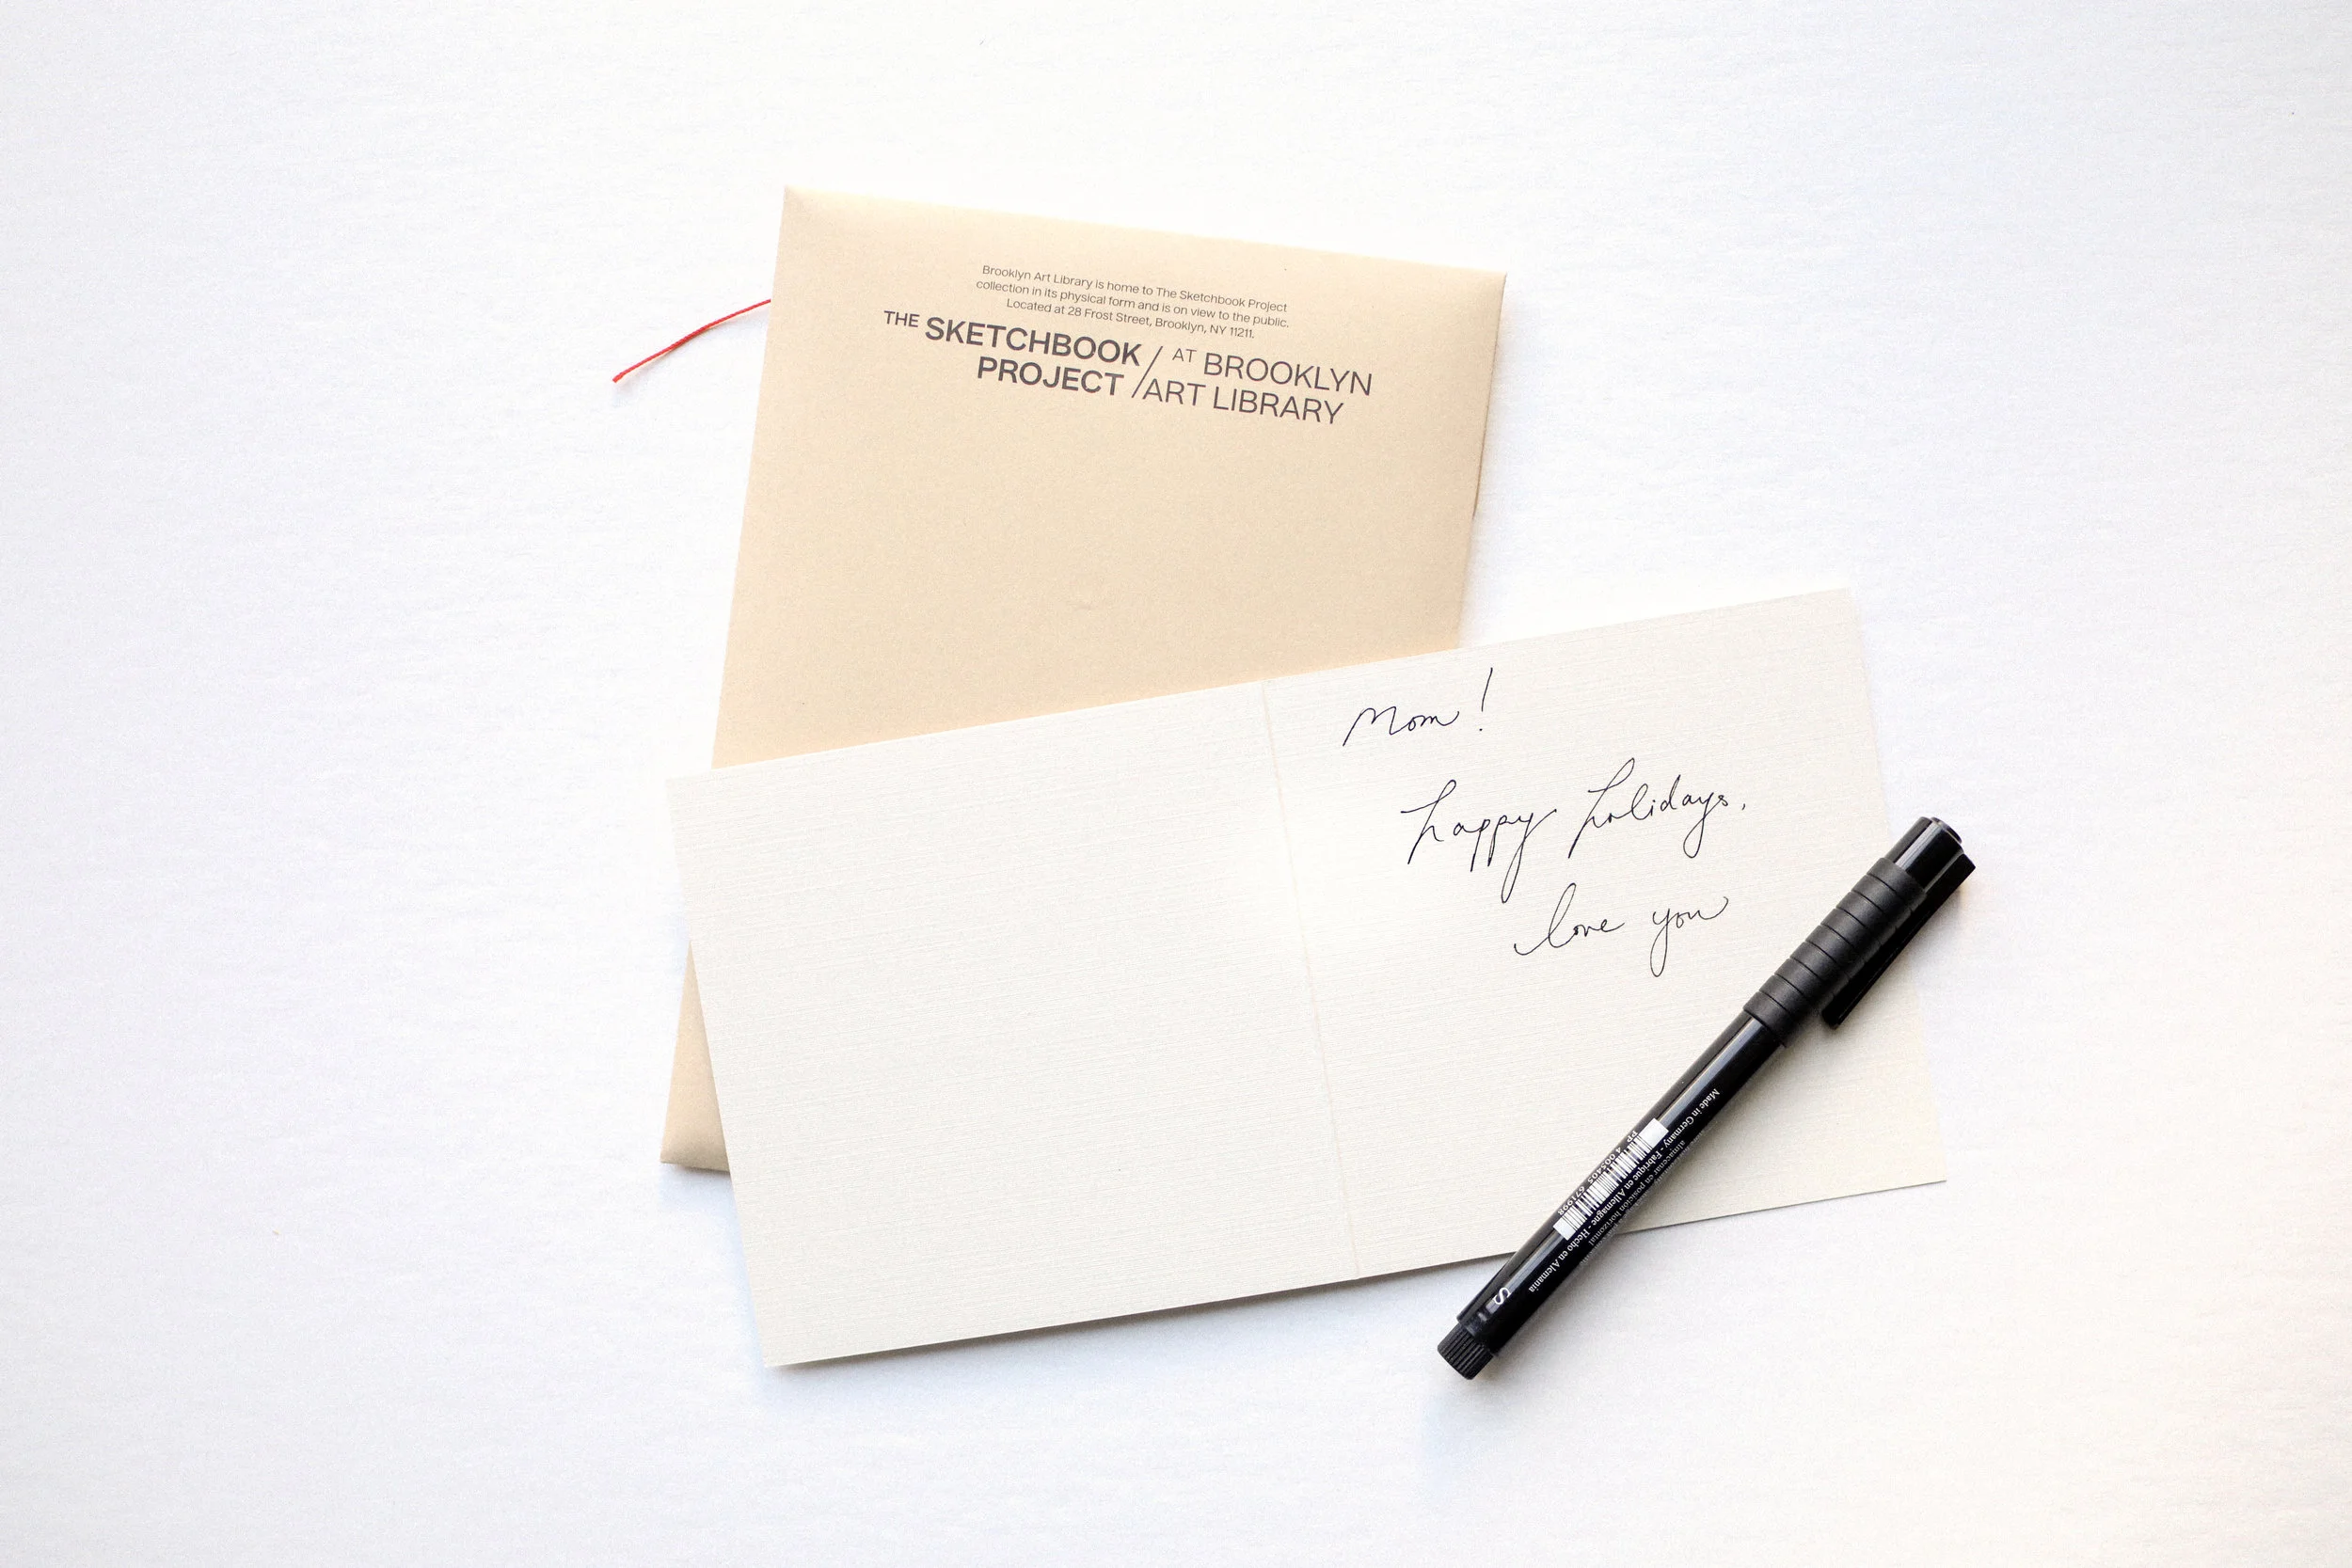 Brooklyn Art Library is home to The Sketchbook Project
collection in its physical form and is on view to the public.
Located at 28 Frost Street, Brooklyn, NY 11211.
THE SKETCHBOOK
PROJECT
AT BROOKLYN
ART LIBRARY
Mom!
happy holidays,
love you
Made in Germany - Fabriqué en Allemagne - Hecho en Alemania
almacenar en posición horizontal
S